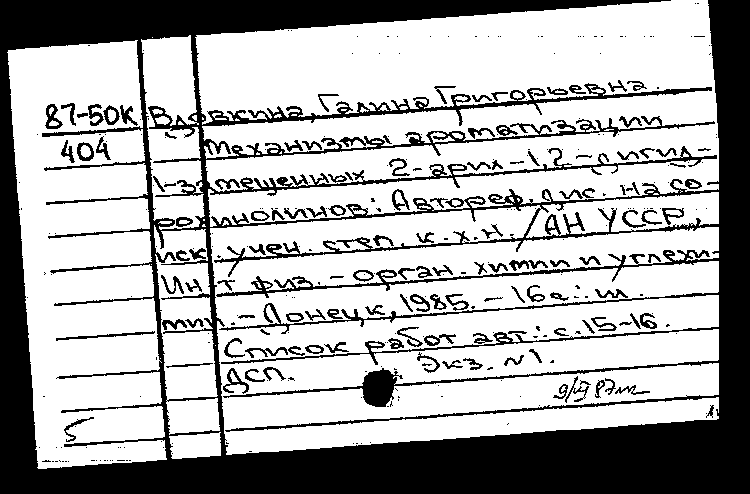 87-50К Вдовкина, Галина Григорьевна.
404 Механизмы ароматизации
1-замещенных 2-арил-1,2-дигид-
рохинолинов: Автореф. дис. на со-
иск. учен. степ. к.х.н. / АН УССР,
Ин-т физ.-орган. химии и углехи-
мии. - Донецк, 1985. - 16 с.: ил.
Список работ авт.: с. 15-16.
ДСП. Экз. №1.
5